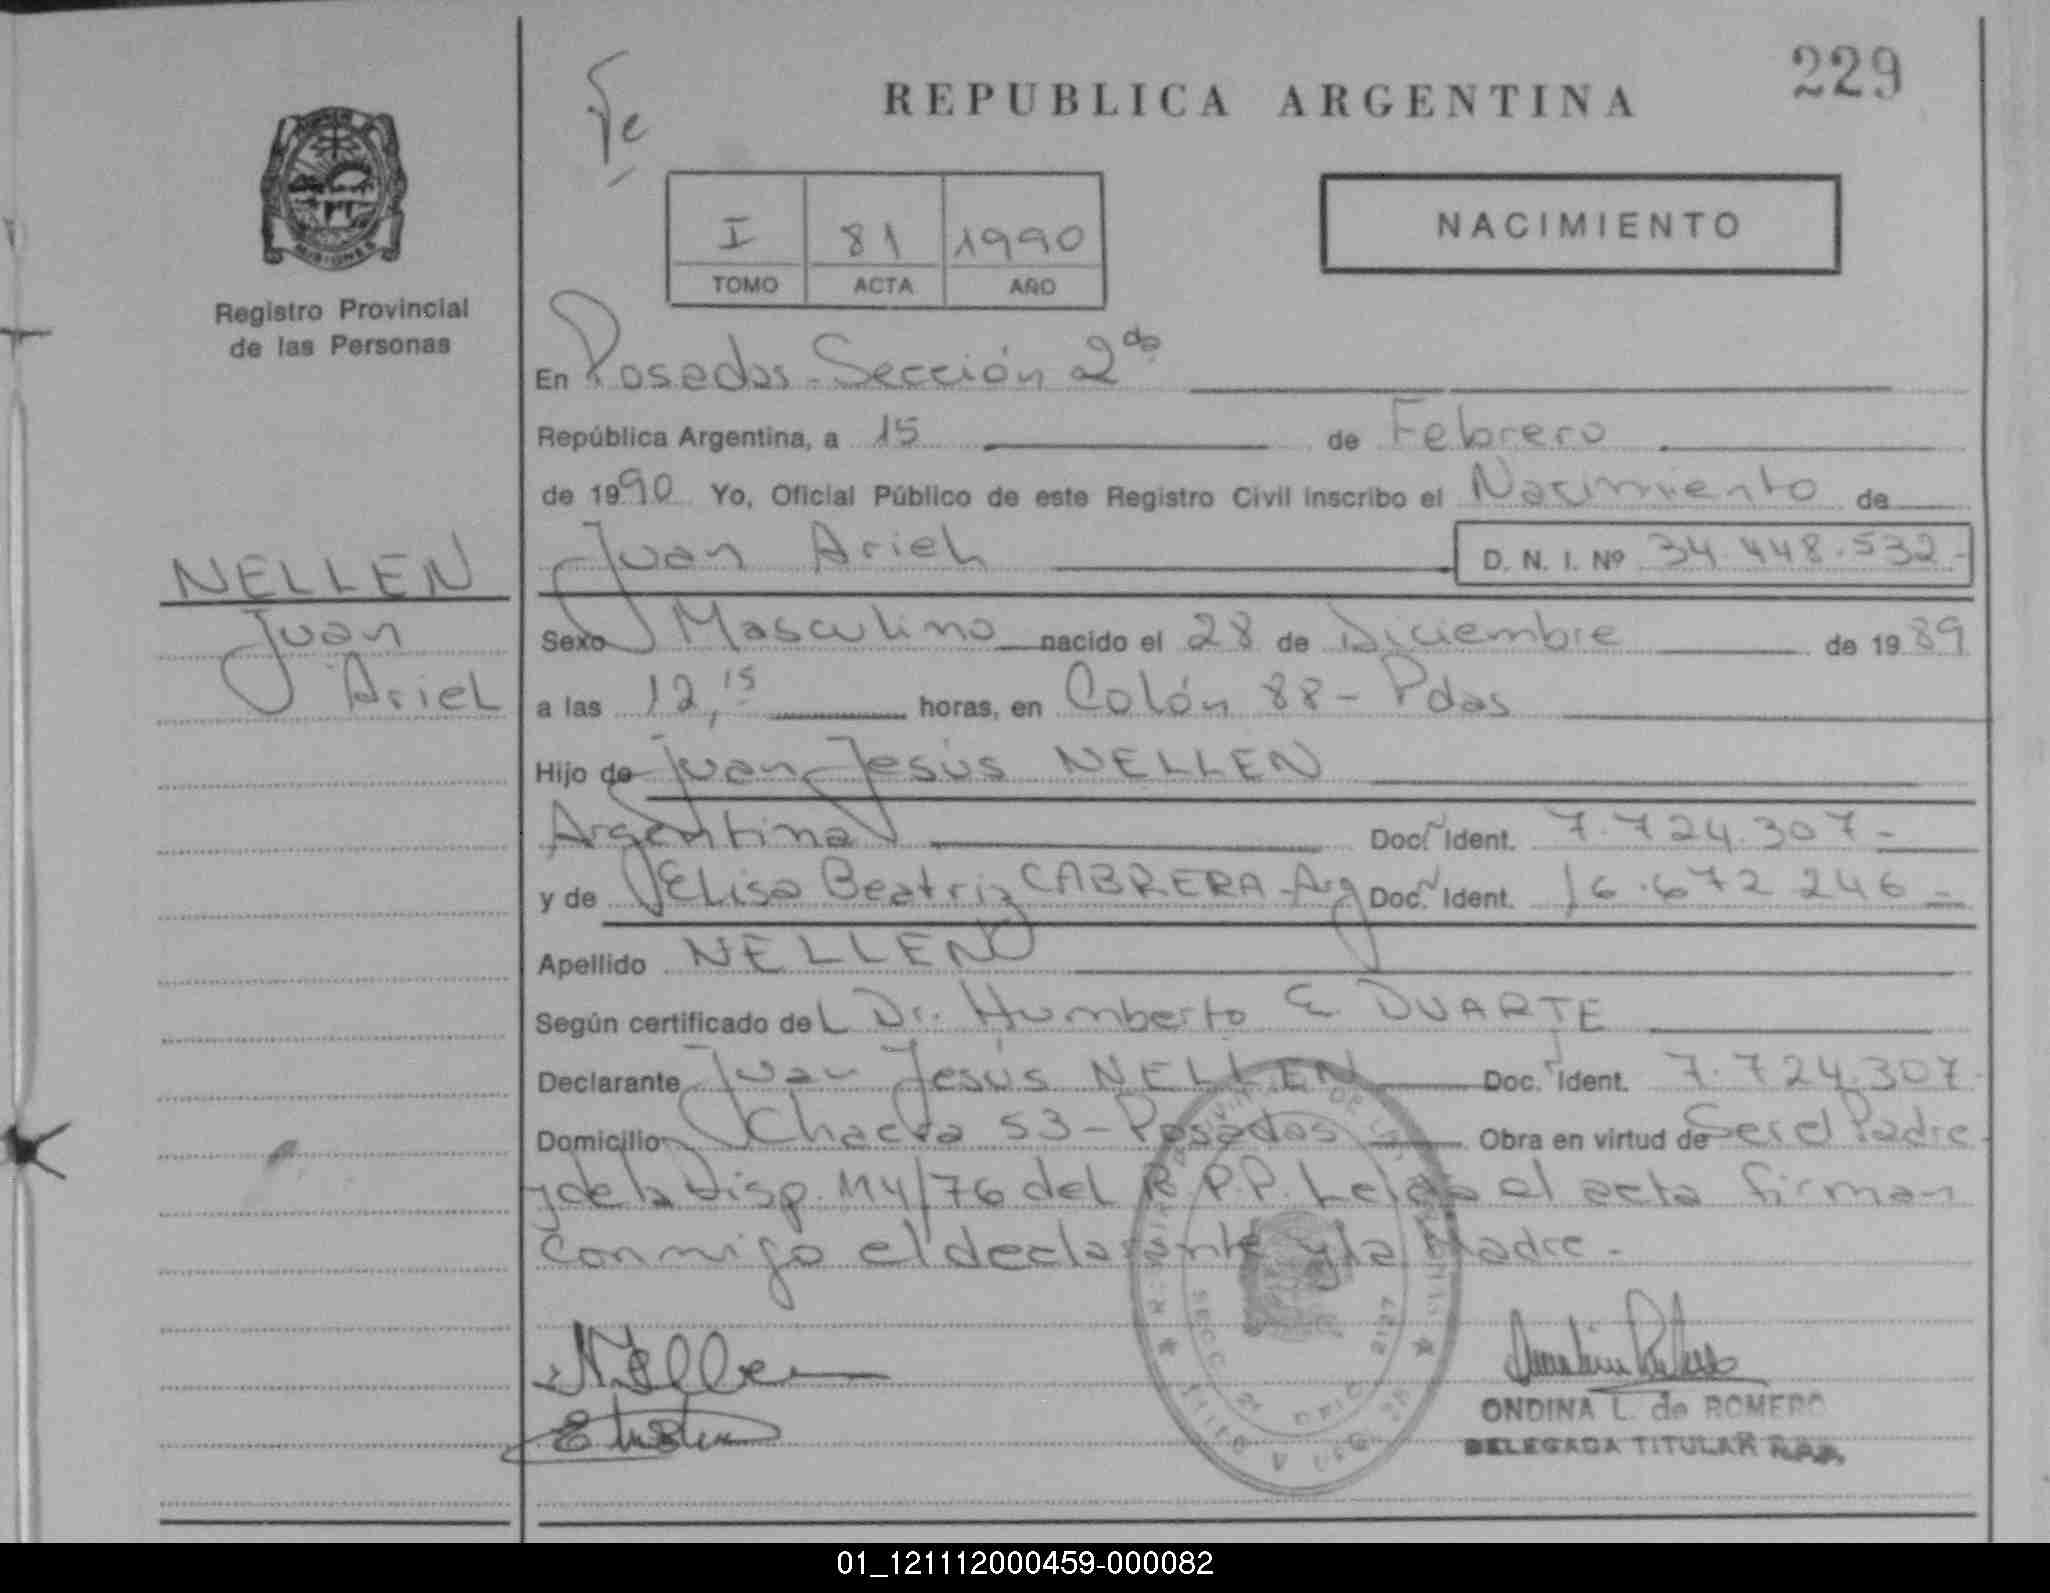 229
REPUBLICA ARGENTINA
NACIMIENTO
I 81 1990
TOMO ACTA AÑO
MISIONES
Registro Provincial
de las Personas
NELLEN
Juan
Ariel
En Posadas - Sección 2da
República Argentina, a 15 de Febrero
de 1990 Yo, Oficial Público de este Registro Civil inscribo el Nacimiento de
Juan Ariel D. N. I. Nº 34.448.532-
Sexo Masculino nacido el 28 de Diciembre de 1989
a las 12,15 horas, en Colón 88 - Pdas
Hijo de Juan Jesús NELLEN
Argentina Doc. Ident. 7.724.307-
y de Elisa Beatriz CABRERA - Arg Doc. Ident. 16.672.246-
Apellido NELLEN
Según certificado del Dr. Humberto E. DUARTE
Declarante Juan Jesús NELLEN Doc. Ident. 7.724.307-
Domicilio Chacra 53 - Posadas Obra en virtud de Ser el Padre
y de la Disp. 114/76 del R.P.P. Leida el acta firman
conmigo el declarante y la Madre.-
Nellen
ONDINA L. de ROMERO
DELEGADA TITULAR R.P.P.
01_121112000459-000082